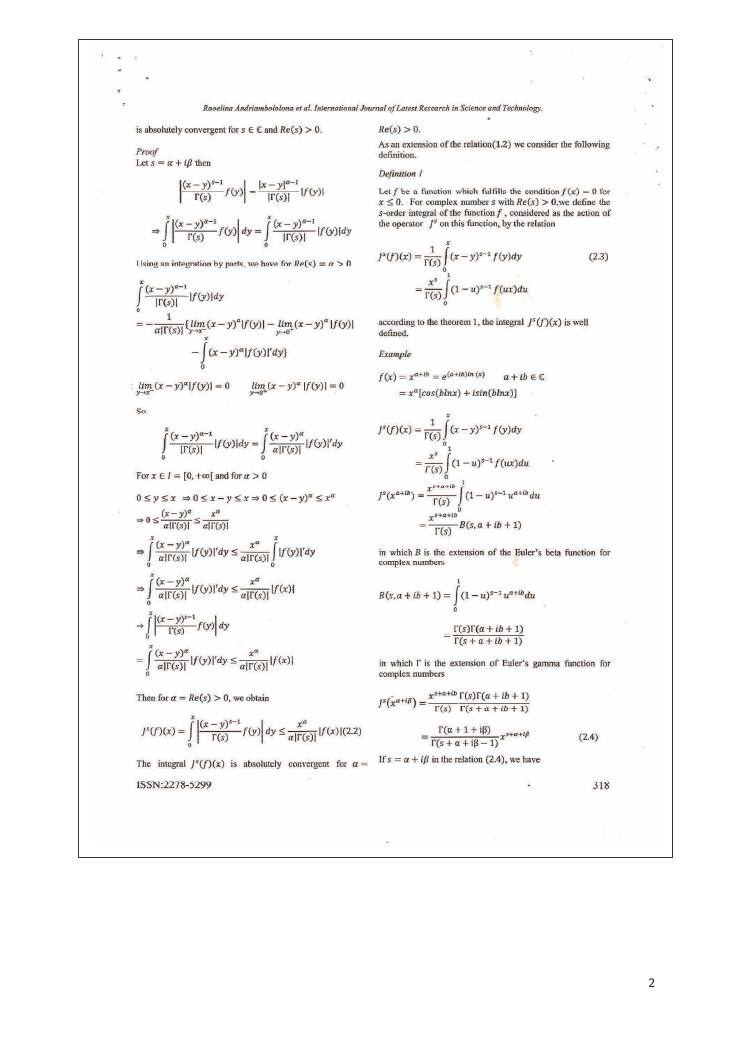 Raoelina Andriambololona et al. International Journal of Latest Research in Science and Technology.
is absolutely convergent for s ∈ ℂ and Re(s) > 0.
Proof
Let s = α + iβ then
|(x − y)^{s−1}/Γ(s) f(y)| = |x − y|^{α−1}/|Γ(s)| |f(y)|
⇒ ∫_0^x |(x − y)^{α−1}/Γ(s) f(y)| dy = ∫_0^x (x − y)^{α−1}/|Γ(s)| |f(y)|dy
Using an integration by parts, we have for Re(s) = α > 0
∫_0^x (x − y)^{α−1}/|Γ(s)| |f(y)|dy
= − 1/(α|Γ(s)|) {lim_{y→x⁻}(x − y)^α|f(y)| − lim_{y→0⁺}(x − y)^α|f(y)|
− ∫_0^x (x − y)^α|f(y)|'dy}
lim_{y→x⁻}(x − y)^α|f(y)| = 0 lim_{y→0⁺}(x − y)^α |f(y)| = 0
So
∫_0^x (x − y)^{α−1}/|Γ(s)| |f(y)|dy = ∫_0^x (x − y)^α/(α|Γ(s)|) |f(y)|'dy
For x ∈ I = [0, +∞[ and for α > 0
0 ≤ y ≤ x ⇒ 0 ≤ x − y ≤ x ⇒ 0 ≤ (x − y)^α ≤ x^α
⇒ 0 ≤ (x − y)^α/(α|Γ(s)|) ≤ x^α/(α|Γ(s)|)
⇒ ∫_0^x (x − y)^α/(α|Γ(s)|) |f(y)|'dy ≤ x^α/(α|Γ(s)|) ∫_0^x |f(y)|'dy
⇒ ∫_0^x (x − y)^α/(α|Γ(s)|) |f(y)|'dy ≤ x^α/(α|Γ(s)|) |f(x)|
→ ∫_0^x |(x − y)^{s−1}/Γ(s) f(y)| dy
= ∫_0^x (x − y)^α/(α|Γ(s)|) |f(y)|'dy ≤ x^α/(α|Γ(s)|) |f(x)|
Then for α = Re(s) > 0, we obtain
J^s(f)(x) = ∫_0^x |(x − y)^{α−1}/Γ(s) f(y)| dy ≤ x^α/(α|Γ(s)|) |f(x)|(2.2)
The integral J^s(f)(x) is absolutely convergent for α =
Re(s) > 0.
As an extension of the relation(1.2) we consider the following
definition.
Definition 1
Let f be a function which fulfills the condition f(x) = 0 for
x ≤ 0. For complex number s with Re(s) > 0,we define the
s-order integral of the function f , considered as the action of
the operator J^s on this function, by the relation
J^s(f)(x) = 1/Γ(s) ∫_0^x (x − y)^{s−1} f(y)dy (2.3)
= x^s/Γ(s) ∫_0^1 (1 − u)^{s−1} f(ux)du
according to the theorem 1, the integral J^s(f)(x) is well
defined.
Example
f(x) = x^{a+ib} = e^{(a+ib)ln (x)} a + ib ∈ ℂ
= x^a[cos(blnx) + isin(blnx)]
J^s(f)(x) = 1/Γ(s) ∫_0^x (x − y)^{s−1} f(y)dy
= x^s/Γ(s) ∫_0^1 (1 − u)^{s−1} f(ux)du
J^s(x^{a+ib}) = x^{s+a+ib}/Γ(s) ∫_0^1 (1 − u)^{s−1} u^{a+ib} du
= x^{s+a+ib}/Γ(s) B(s, a + ib + 1)
in which B is the extension of the Euler's beta function for
complex numbers
B(s, a + ib + 1) = ∫_0^1 (1 − u)^{s−1} u^{a+ib}du
= Γ(s)Γ(a + ib + 1)/Γ(s + a + ib + 1)
in which Γ is the extension of Euler's gamma function for
complex numbers
J^s(x^{α+iβ}) = x^{s+a+ib}/Γ(s) Γ(s)Γ(a + ib + 1)/Γ(s + a + ib + 1)
= Γ(α + 1 + iβ)/Γ(s + α + iβ − 1) x^{s+α+iβ} (2.4)
If s = α + iβ in the relation (2.4), we have
ISSN:2278-5299 318
2